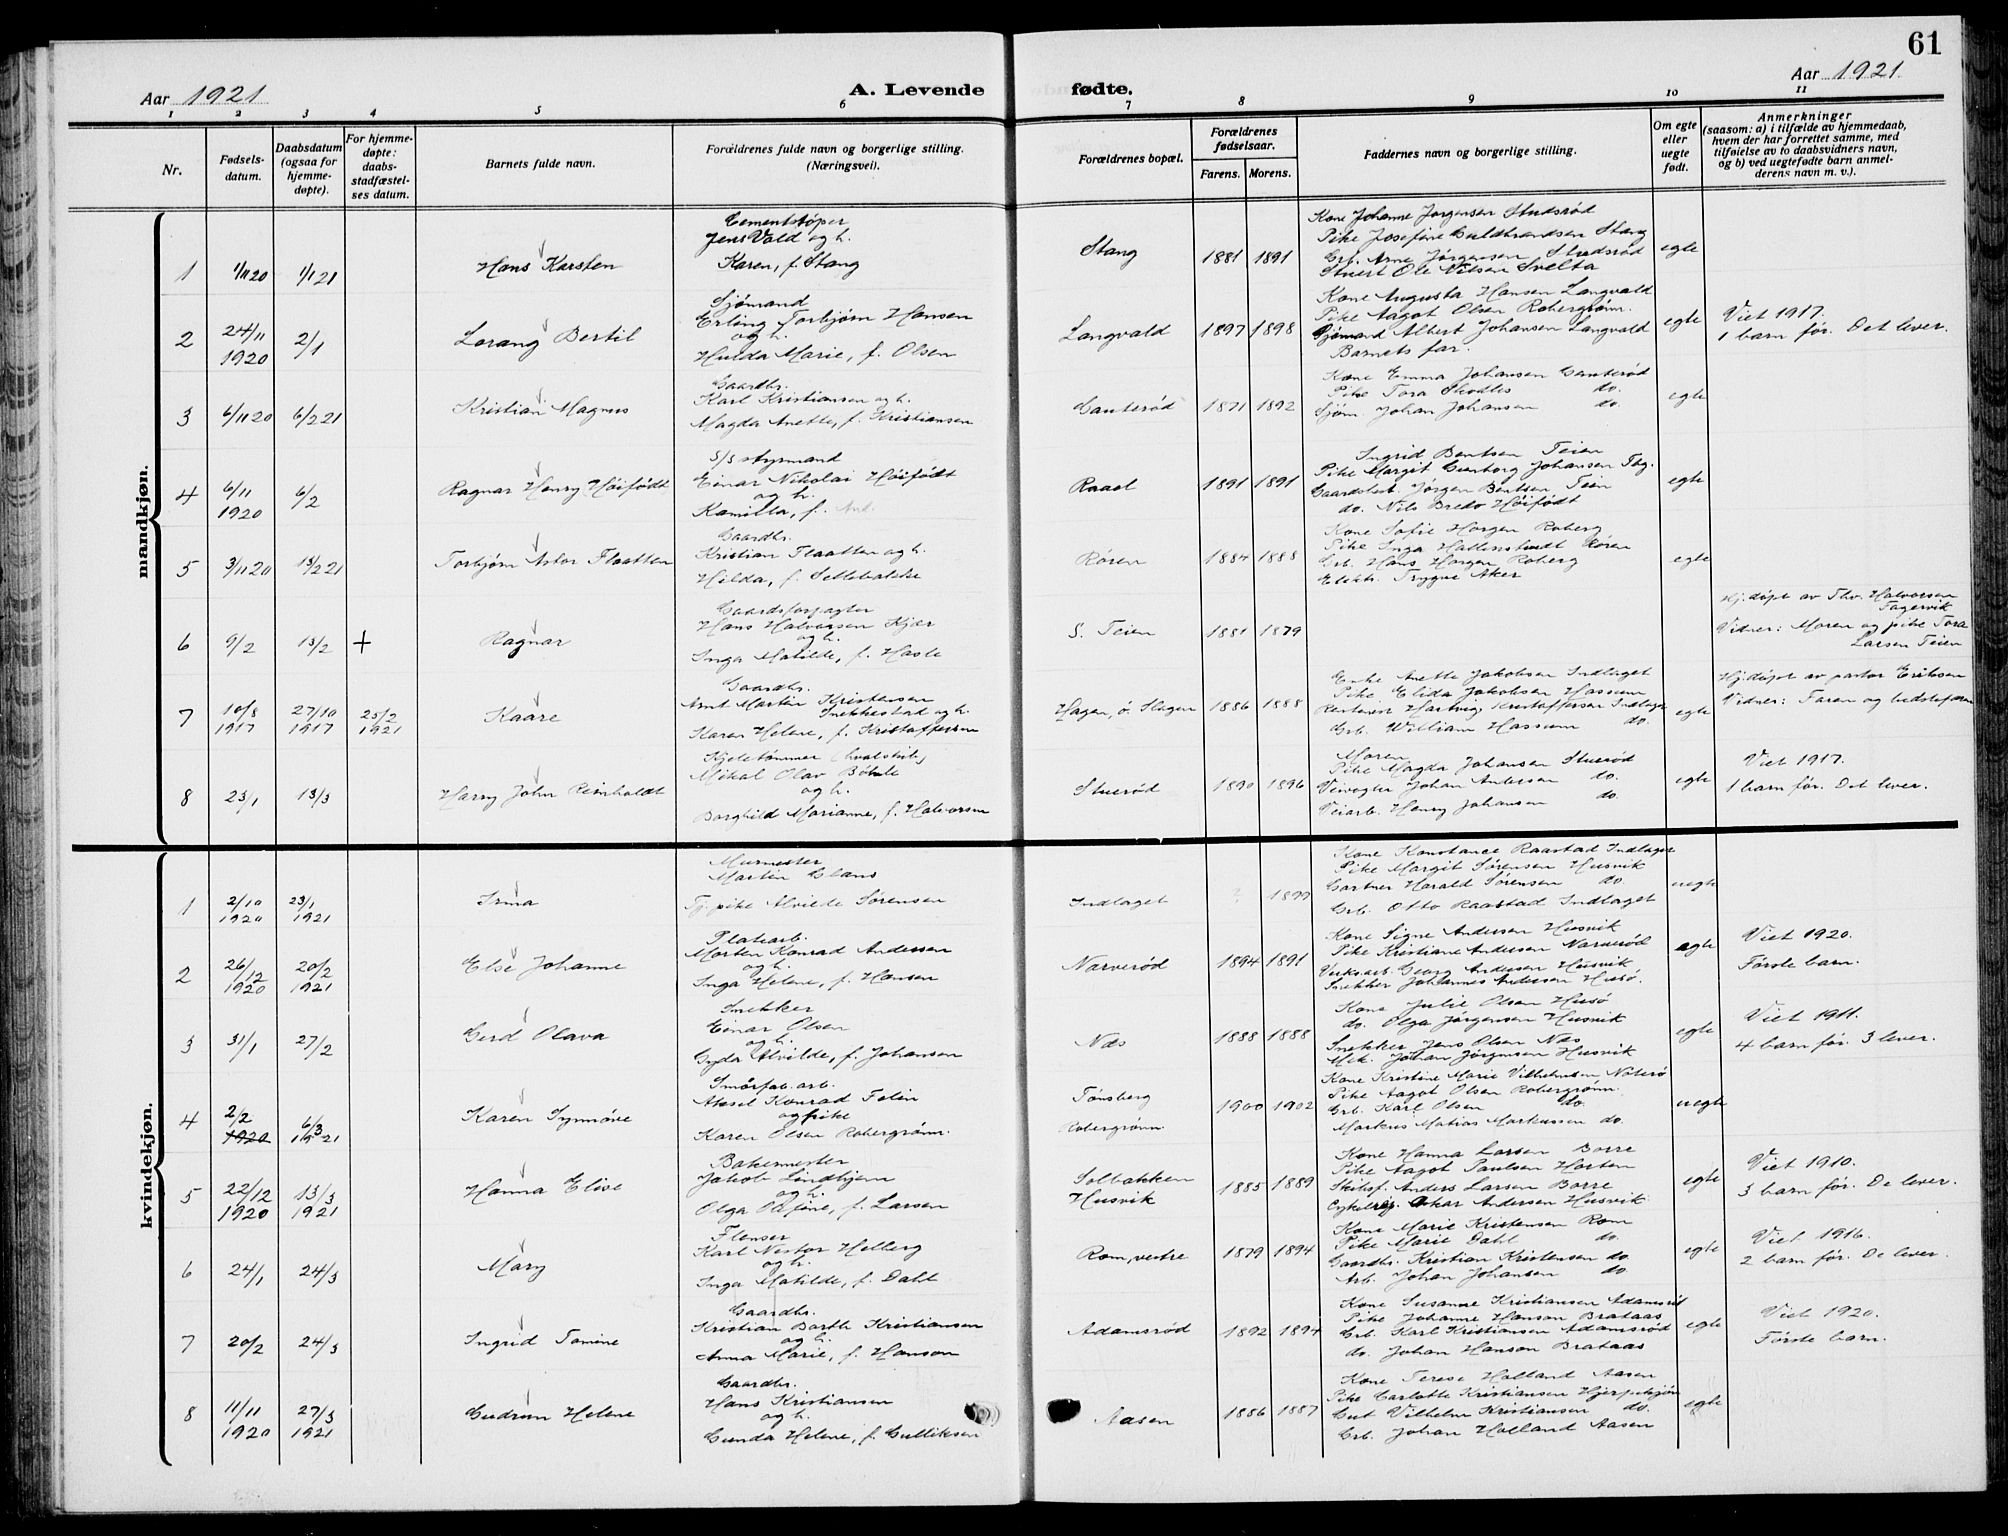 61
Aar 1921
A. Levende fødte.
Aar 1921.
1 2 3 4 5 6 7 8 9 10 11
Nr.
Fødsels-
datum.
Daabsdatum
(ogsaa for
hjemme-
døpte).
For hjemme-
døpte:
daabs-
stadfæstel-
ses datum.
Barnets fulde navn.
Forældrenes fulde navn og borgerlige stilling.
(Næringsvei).
Forældrenes bopæl.
Forældrenes
fødselsaar.
Farens. Morens.
Faddernes navn og borgerlige stilling.
Om egte
eller
uegte
født.
Anmerkninger
(saasom: a) i tilfælde av hjemmedaab,
hvem der har forrettet samme, med
tilføielse av to daabsvidners navn,
og b) ved uegtefødte barn anmel-
derens navn m. v.).
mandkjøn.
1 1/11 20 1/1 21 Hans Karsten
Cementstøper
Jens Vald og h.
Karen, f. Stang
Stang 1881 1891
Kone Johanne Jørgensen Studsrød
Pike Josefine Guldbrandsen Stang
Grb. Arne Jørgensen Studsrød
Stuert Ole Nilsen Svelta
egte
2 24/11 1920 2/1 Lorang Bertil
Sjømand
Erling Torbjørn Hansen
og h.
Hulda Marie, f. Olsen
Langvald 1897 1898
Kone Augusta Hansen Langvald
Pike Aagot Olsen Robergrønn.
Sjømand Albert Johansen Langvald
Barnets far.
egte
Viet 1917.
1 barn før. Det lever.
3 6/11 20 6/2 21 Kristian Magnus
Gaardbr.
Karl Kristiansen og h.
Magda Anette, f. Kristiansen
Gauterød 1871 1892
Kone Emma Johansen Gauterød
Pike Tora Skodtes do.
Sjøm. Johan Johansen do.
egte
4 6/11 1920 6/2 Ragnar Henry Høifødt
S/S styrmand
Einar Nikolai Høifødt
og h.
Kamilla, f.
Raael 1891 1891
Ingrid Bentsen Teien
Pike Margit Johansen Tbg.
Gaardbest. Jørgen Bentsen Teien
do. Nils Bredo Høifødt
egte
5 3/11 20 13/2 21 Torbjørn Astor Flaatten
Gaardbr.
Kristian Flaatten og h.
Hilda, f. Sellebakke
Røren 1884 1888
Kone Sofie Horgen Roberg
Pike Inga Hallenstvedt Røren
Grb. Hans Horgen Roberg
Elektr. Trygve Aker
egte
6 9/2 13/2 + Ragnar
Gaardsforpagter
Hans Halvorsen Kjær
og h.
Inga Matilde, f. Hasle
S. Teien 1881 1879
Hj. døpt av Thv. Halvorsen
Fagervik
Vidner: Moren og pike Tora
Larsen Teien
7 10/8 1917 27/10 1917 25/2 1921 Kaare
Gaardbr.
Arnt Martin Kristensen
Snekkestad og h.
Karen Helene, f. Kristoffersen
Hagen, ø. Slagen 1886 1888
Enke Anette Jakobsen Indlaget
Pike Elida Jakobsen Hassum
Rentenist Hartvig Kristoffersen Indlaget
Grb. William Hassum do.
egte
Hj. døpt av pastor Eriksen
Vidner: Faren og bedstefaren
8 23/1 13/3 Harry John Reinholdt
Kjeletømmer (hvalskib)
Mikal Olav Bøhle
og h.
Borghild Marianne, f. Halvorsen
Stuerød 1890 1896
Moren
Pike Magda Johansen Stuerød
Veivogter Johan Andersen do.
Veiarb. Henry Johansen do.
egte
Viet 1917.
1 barn før. Det lever.
kvindekjøn.
1 2/10 1920 23/1 1921 Irma
Murmester
Martin Clans
Tj. pike Alvilde Sørensen
Indlaget ? 1899
Kone Konstance Raastad Indlaget
Pike Margit Sørensen Husvik
Gartner Harald Sørensen do.
Grb. Otto Raastad Indlaget
uegte
2 26/12 1920 20/2 1921 Else Johanne
Platearb.
Morten Konrad Andersen
og h.
Inga Helene, f. Hansen
Narverød 1894 1891
Kone Signe Andersen Husvik
Pike Kristiane Andersen Narverød
Verks.arb. Georg Andersen Husvik
Snekker Johannes Andersen Husø.
egte
Viet 1920.
Første barn.
3 31/1 27/2 Gerd Olava
Snekker
Einar Olsen
og h.
Gyda Alvilde, f. Johansen
Næs 1888 1888
Kone Julie Olsen Husø
do. Olga Jørgensen Husvik
Snekker Jens Olsen Næs
Mek. Johan Jørgensen Husvik
egte
Viet 1911.
4 barn før. 3 lever.
4 2/2 1920 6/3 1921 Karen Synnøve
Smørfab. arb.
Aksel Konrad Folin
og pike
Karen Olsen Robergrønn.
Tønsberg
Robergrønn.
1900 1902
Kone Kristine Marie Vilhelmsen Nøterø
Pike Aagot Olsen Robergrønn.
Grb. Karl Olsen do.
Markus Matias Markussen do.
uegte
5 22/12 1920 13/3 1921 Hanna Elise
Bakermester
Jakob Lindhjem
og h.
Olga Olefine, f. Larsen
Solbakken
Husvik
1885 1889
Kone Hanna Larsen Borre
Pike Aagot Paulsen Horten
Skibsf. Anders Larsen Borre
Cykelrep. Oskar Andersen Husvik
egte
Viet 1910.
3 barn før. De lever.
6 24/1 24/3 Mary
Flenser
Karl Nestor Helberg
og h.
Inga Matilde, f. Dahl
Rom, vestre 1879 1894
Kone Marie Kristensen Rom
Pike Marie Dahl do.
Gaardbr. Kristian Kristensen do.
Arb. Johan Johansen do.
egte
Viet 1916.
2 barn før. De lever.
7 20/2 24/3 Ingrid Tomine
Gaardbr.
Kristian Barth Kristiansen
og h.
Anna Marie, f. Hanson
Adamsrød 1892 1894
Kone Susanne Kristiansen Adamsrød
Pike Johanne Hanson Brataas
Grb. Karl Kristiansen Adamsrød
do. Johan Hanson Brataas
egte
Viet 1920.
Første barn.
8 11/11 1920 27/3 1921 Gudrun Helene
Gaardbr.
Hans Kristiansen
og h.
Gunda Helene, f. Gulliksen
Aasen 1886 1887
Kone Terese Holland Aasen
Pike Carlotte Kristiansen Hjerpekjøn
Gut Vilhelm Kristiansen do.
Grb. Johan Holland Aasen
egte